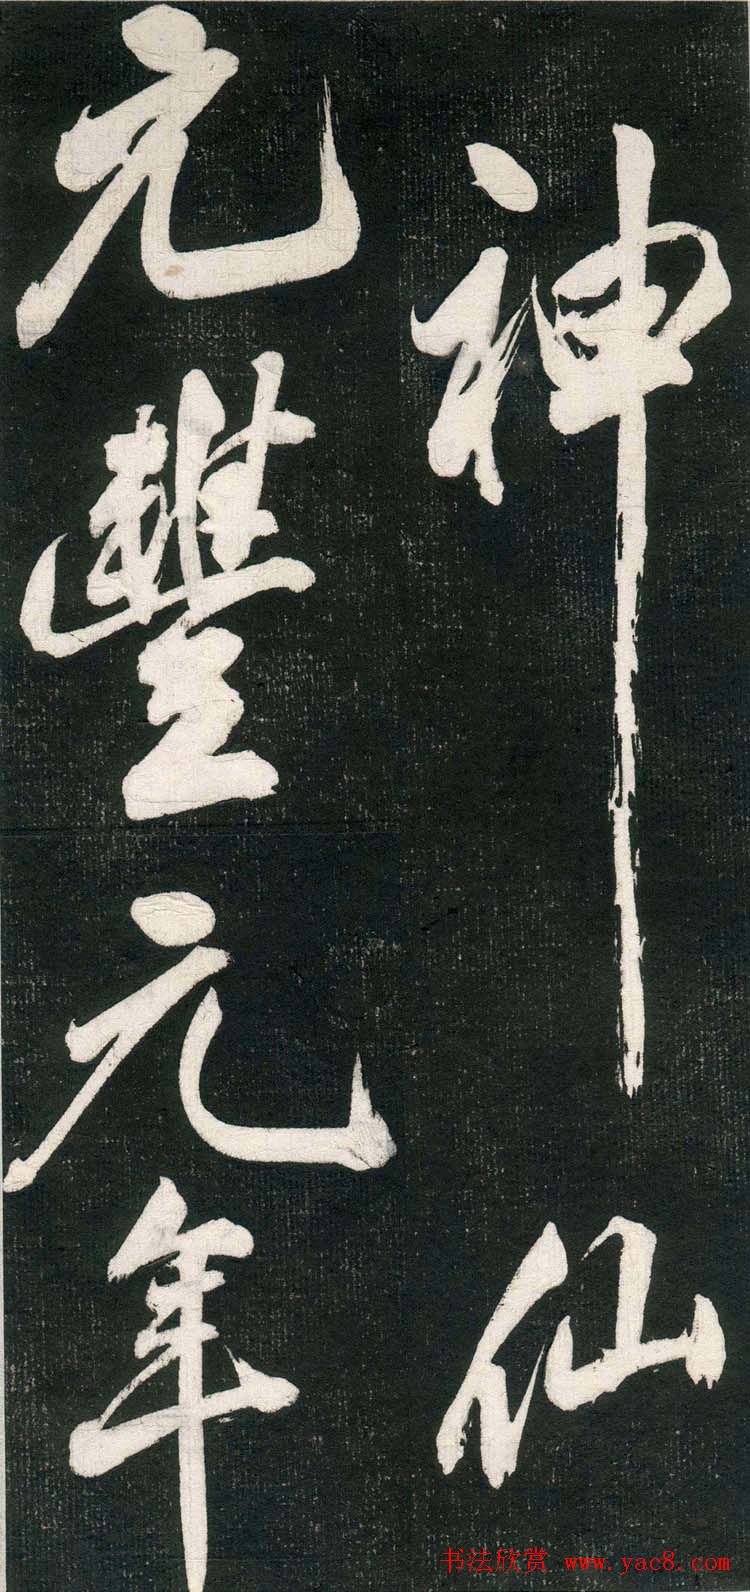 神仙
元豐元年
书法欣赏 www.yac8.com